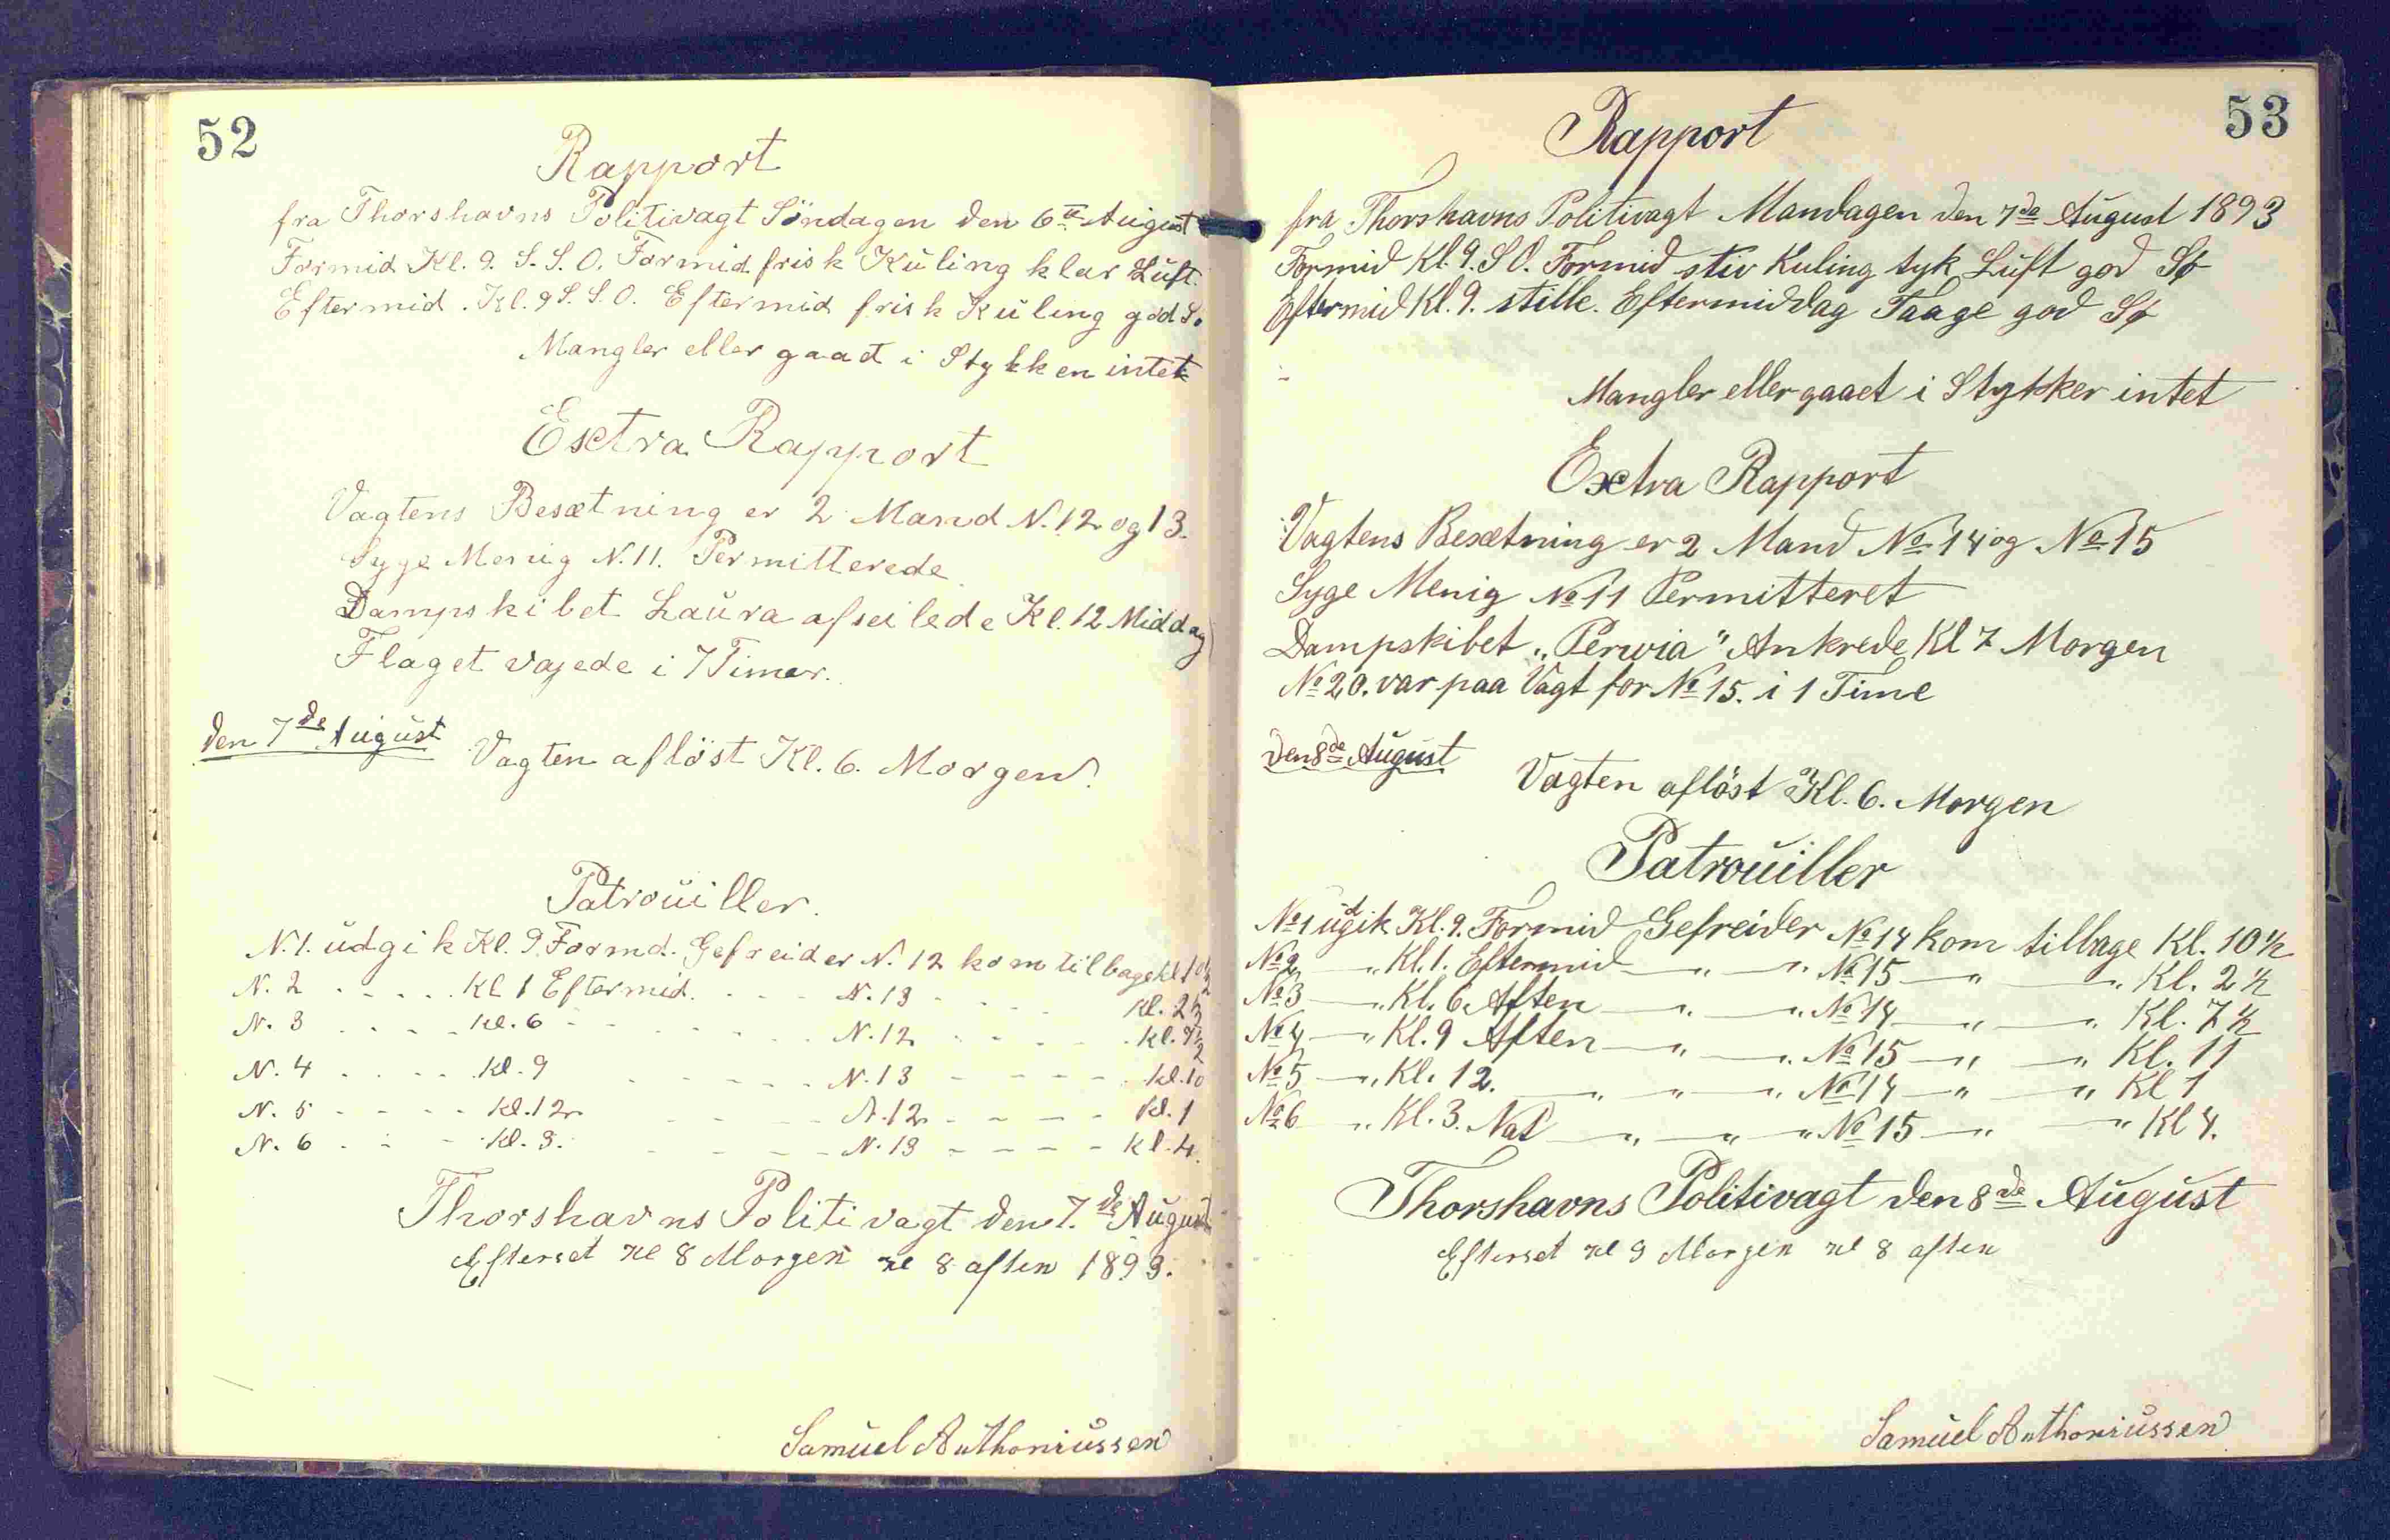 52
Rapport
fra Thorshavns Politivagt Söndagen den 6te August
Formid Kl. 9. S. S. O. Formid frisk Kuling klar Luft.
Eftermid. Kl. 9 S. S. O. Eftermid frisk Kuling god S.
Mangler eller gaaet i Stykken intet
Exctra Rapport
Vagtens Besætning er 2 Mand N. 12 og 13.
Syge Menig N. 11. Permitterede
Dampskibet Laura afseilede Kl. 12 Middag
Flaget vajede i 7 Timer.
den 7de August Vagten aflöst Kl. 6. Morgen.
Patrouiller.
N. 1. udgik Kl. 9. Formd. Gefreider N. 12 kom tilbage Kl 10½
N. 2 - - - - Kl 1 Eftermid. - - - N. 13 - - - - Kl. 2½
N. 3 - - - - Kl. 6 - - - - - - N. 12 - - - - Kl. 7½
N. 4 - - - - Kl. 9 - - - - - N. 13 - - - - Kl. 10
N. 5 - - - - Kl. 12 - - - - N. 12 - - - - Kl. 1
N. 6 - - - Kl. 3. - - - - N. 13 - - - - Kl. 4.
Thorshavns Politivagt den 7.de August
Efterset Kl 8 Morgen Kl 8 aften 1893.
Samuel Anthoniussen
53
Rapport
fra Thorshavns Politivagt Mandagen den 7de August 1893
Formid Kl. 9. S O. Formid stiv Kuling tyk Luft god Sø
Eftermid Kl. 9. stille. Eftermiddag Taage god Sø
Mangler eller gaaet i Stykker intet
Exctra Rapport
Vagtens Besætning er 2 Mand No 14 og No 15
Syge Menig No 11 Permitteret
Dampskibet „Perwia" Ankrede Kl 7 Morgen
No 20. var paa Vagt for No 15. i 1 Time
den 8de August Vagten aflöst Kl. 6. Morgen
Patrouiller
No 1 udgik Kl. 9. Formid Gefreider No 14 kom tilbage Kl. 10½
No 2 — „ Kl. 1. Eftermid — „ — „ No 15 — „ — „ Kl. 2½
No 3 — „ Kl. 6 Aften — „ — „ No 14 — „ — „ Kl. 7½
No 4 — „ Kl. 9 Aften — „ — „ No 15 — „ — „ Kl. 11
No 5 — „ Kl. 12. — „ — „ — „ No 14 — „ — „ Kl 1
No 6 — „ Kl. 3. Nat — „ — „ — „ No 15 — „ — „ Kl 4.
Thorshavns Politivagt den 8de August
Efterset Kl 9 Morgen Kl 8 aften
Samuel Anthoniussen